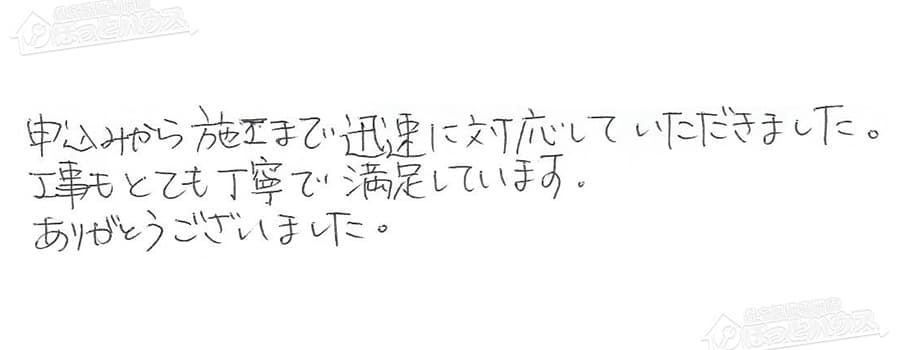 ほっとハウス
申込みから施工まで迅速に対応していただきました。
工事もとても丁寧で満足しています。
ありがとうございました。
ほっとハウス